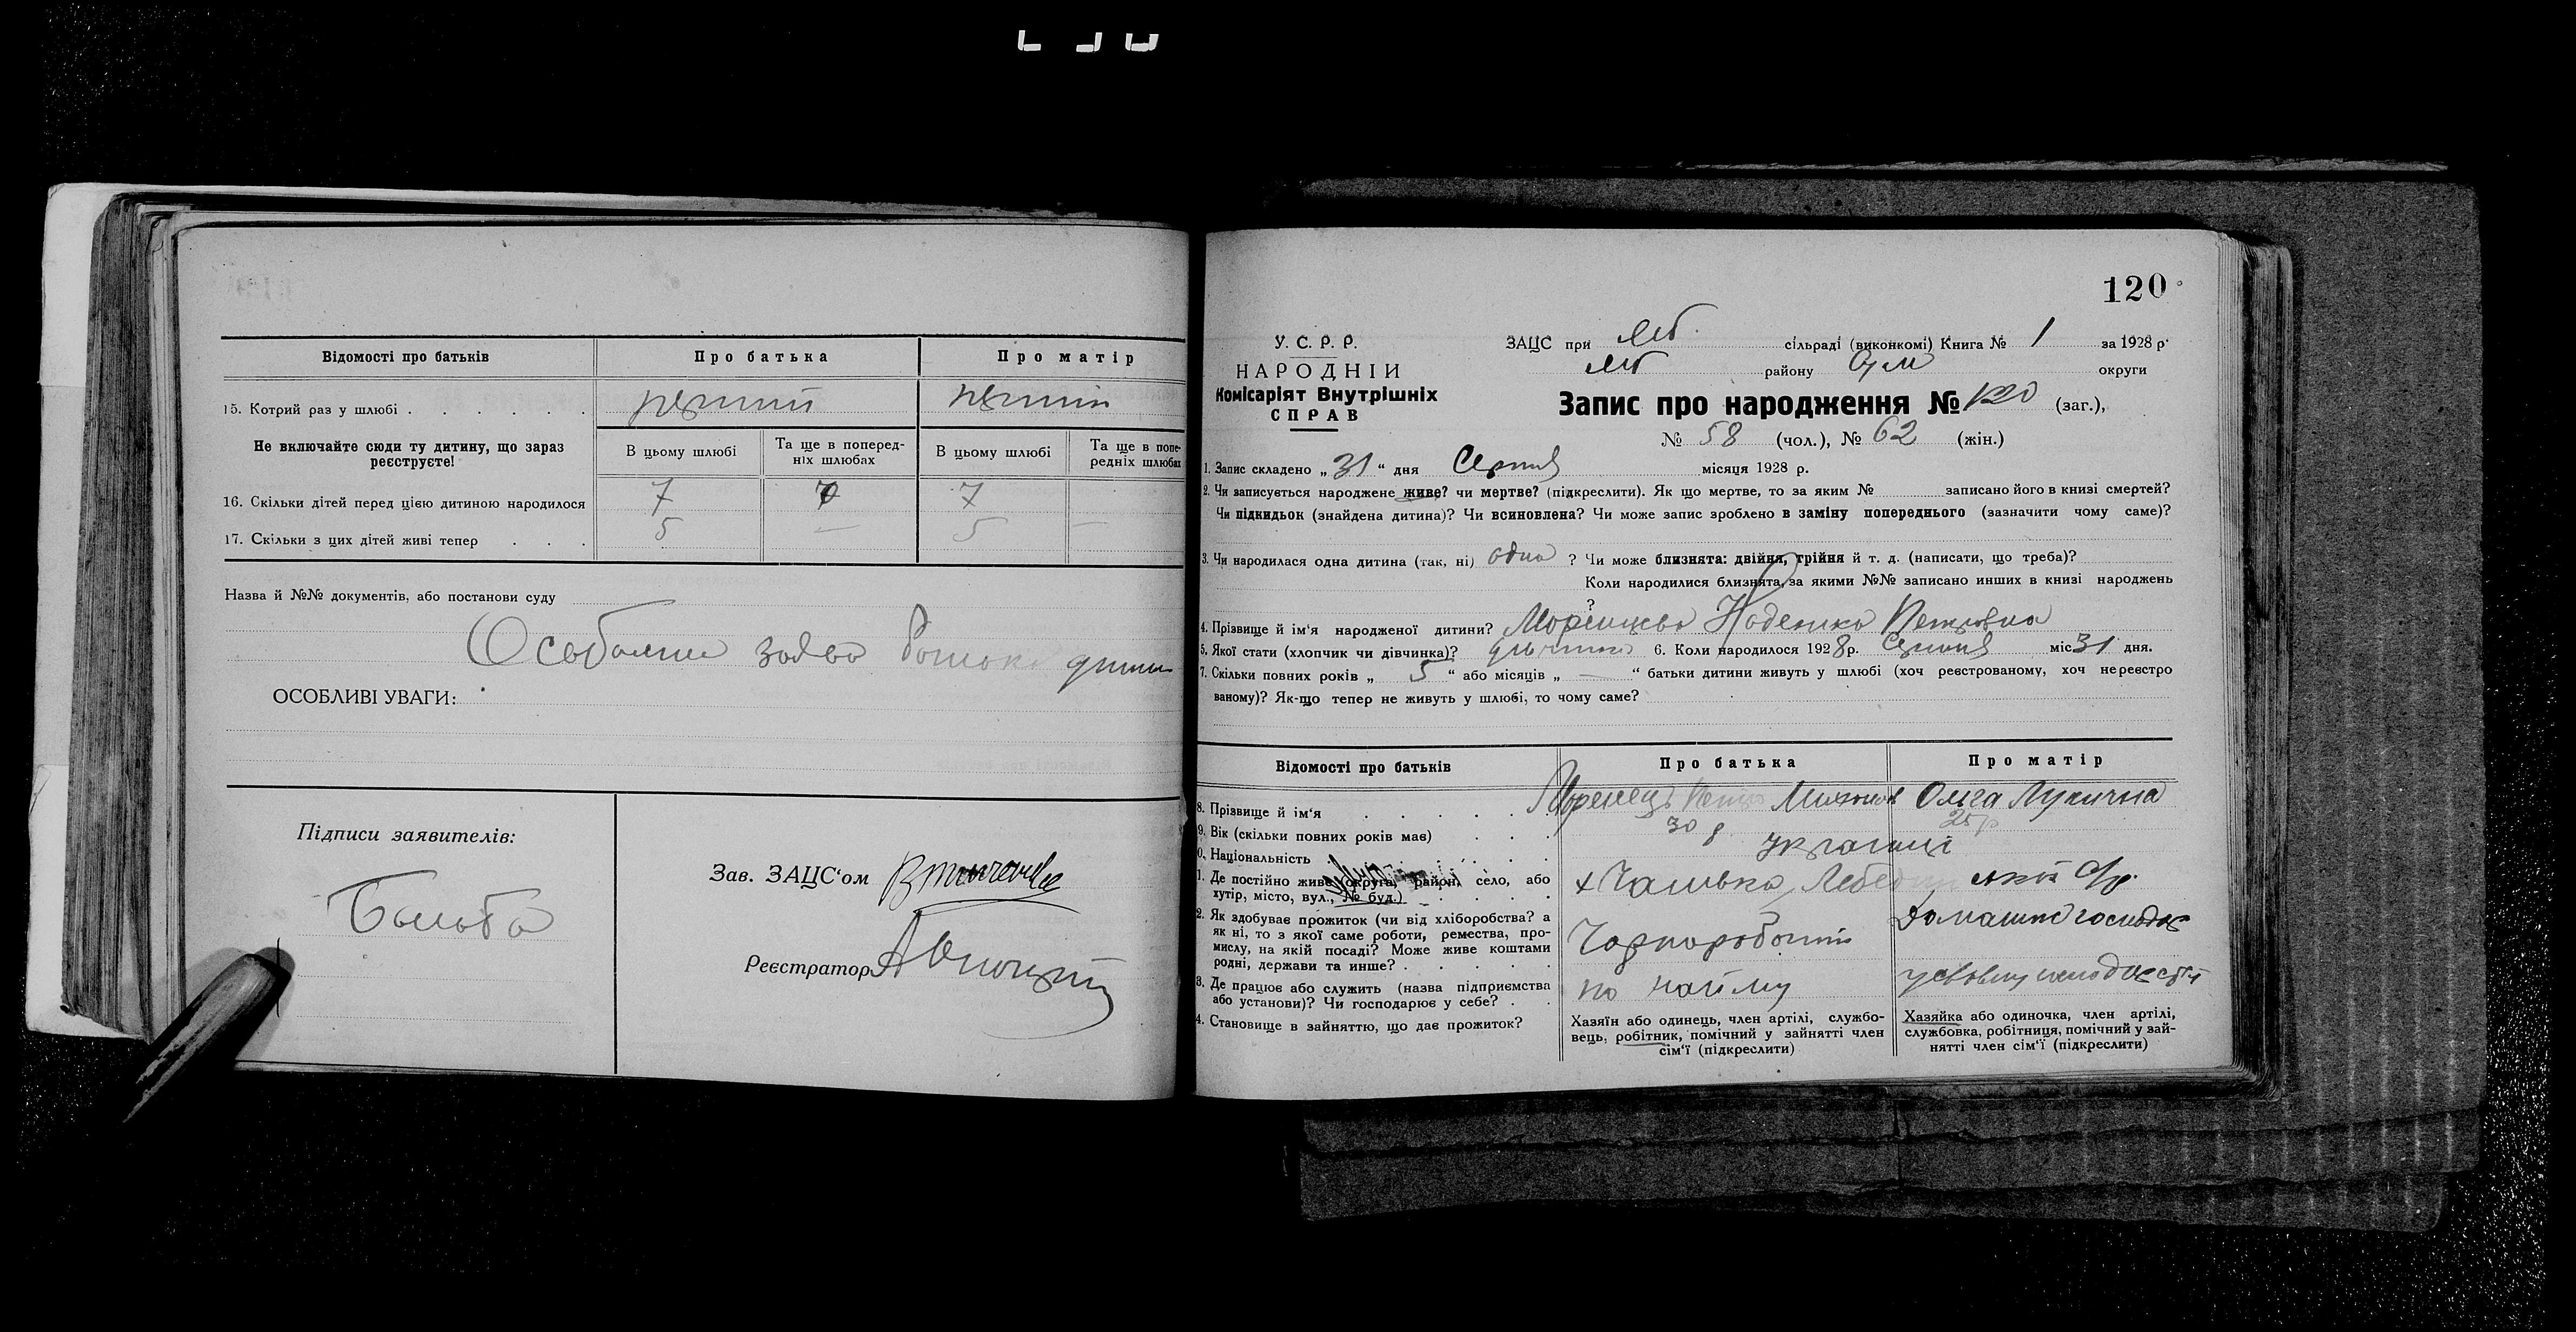 Відомості про батьків
Про батька
Про матір
15. Котрий раз у шлюбі . . . . . .
перший
Не включайте сюди ту дитину, що зараз
реєструєте!
В цьому шлюбі
Та ще в поперед-
ніх шлюбах
В цьому шлюбі
Та ще в попе-
редніх шлюбах
16. Скільки дітей перед цією дитиною народилося
7
7
17. Скільки з цих дітей живі тепер . . .
5 — 5 —
Назва й №№ документів, або постанови суду
заява
ОСОБЛИВІ УВАГИ:
Підписи заявителів:
Зав. ЗАЦС'ом
Реєстратор
120
У. С. Р. Р.
НАРОДНІЙ
Комісаріят Внутрішніх
СПРАВ
ЗАЦС при Леб. сільраді (виконкомі) Книга № 1 за 1928 р.
Леб району Сум округи
Запис про народження № 120 (заг.),
№ 58 (чол.), № 62 (жін.)
1. Запис складено „ 31 “ дня Серпня місяця 1928 р.
2. Чи записується народжене живе? чи мертве? (підкреслити). Як що мертве, то за яким № записано його в книзі смертей?
Чи підкидьок (знайдена дитина)? Чи всиновлена? Чи може запис зроблено в заміну попереднього (зазначити чому саме)?
3. Чи народилася одна дитина (так, ні) одна ? Чи може близнята: двійня, трійня й т. д. (написати, що треба)?
Коли народилися близнята, за якими №№ записано инших в книзі народжень
?
4. Прізвище й ім'я народженої дитини? Петрівна
5. Якої стати (хлопчик чи дівчинка)? 6. Коли народилося 1928 р. Серпня міс 31 дня.
7. Скільки повних років „ 5 “ або місяців „ — “ батьки дитини живуть у шлюбі (хоч реєстрованому, хоч нереєстро
ваному)? Як-що тепер не живуть у шлюбі, то чому саме?
Відомості про батьків
Про батька
Про матір
8. Прізвище й ім'я . . . . . .
Ольга Лукична
9. Вік (скільки повних років має) . . .
30 р
25 р
0. Національність . . . . . .
українці
1. Де постійно живе (округа, район, село, або
хутір, місто, вул., № буд.) . . . . .
2. Як здобуває прожиток (чи від хліборобства? а
як ні, то з якої саме роботи, ремества, про-
мислу, на якій посаді? Може живе коштами
родні, держави та инше? . . . . .
Чорноробочий
3. Де працює або служить (назва підприємства
або установи)? Чи господарює у себе? . .
по найму
4. Становище в зайняттю, що дає прожиток?
Хазяїн або одинець, член артілі, службо-
вець, робітник, помічний у зайнятті член
сім'ї (підкреслити)
Хазяйка або одиночка, член артілі,
службовка, робітниця, помічний у зай-
нятті член сім'ї (підкреслити)